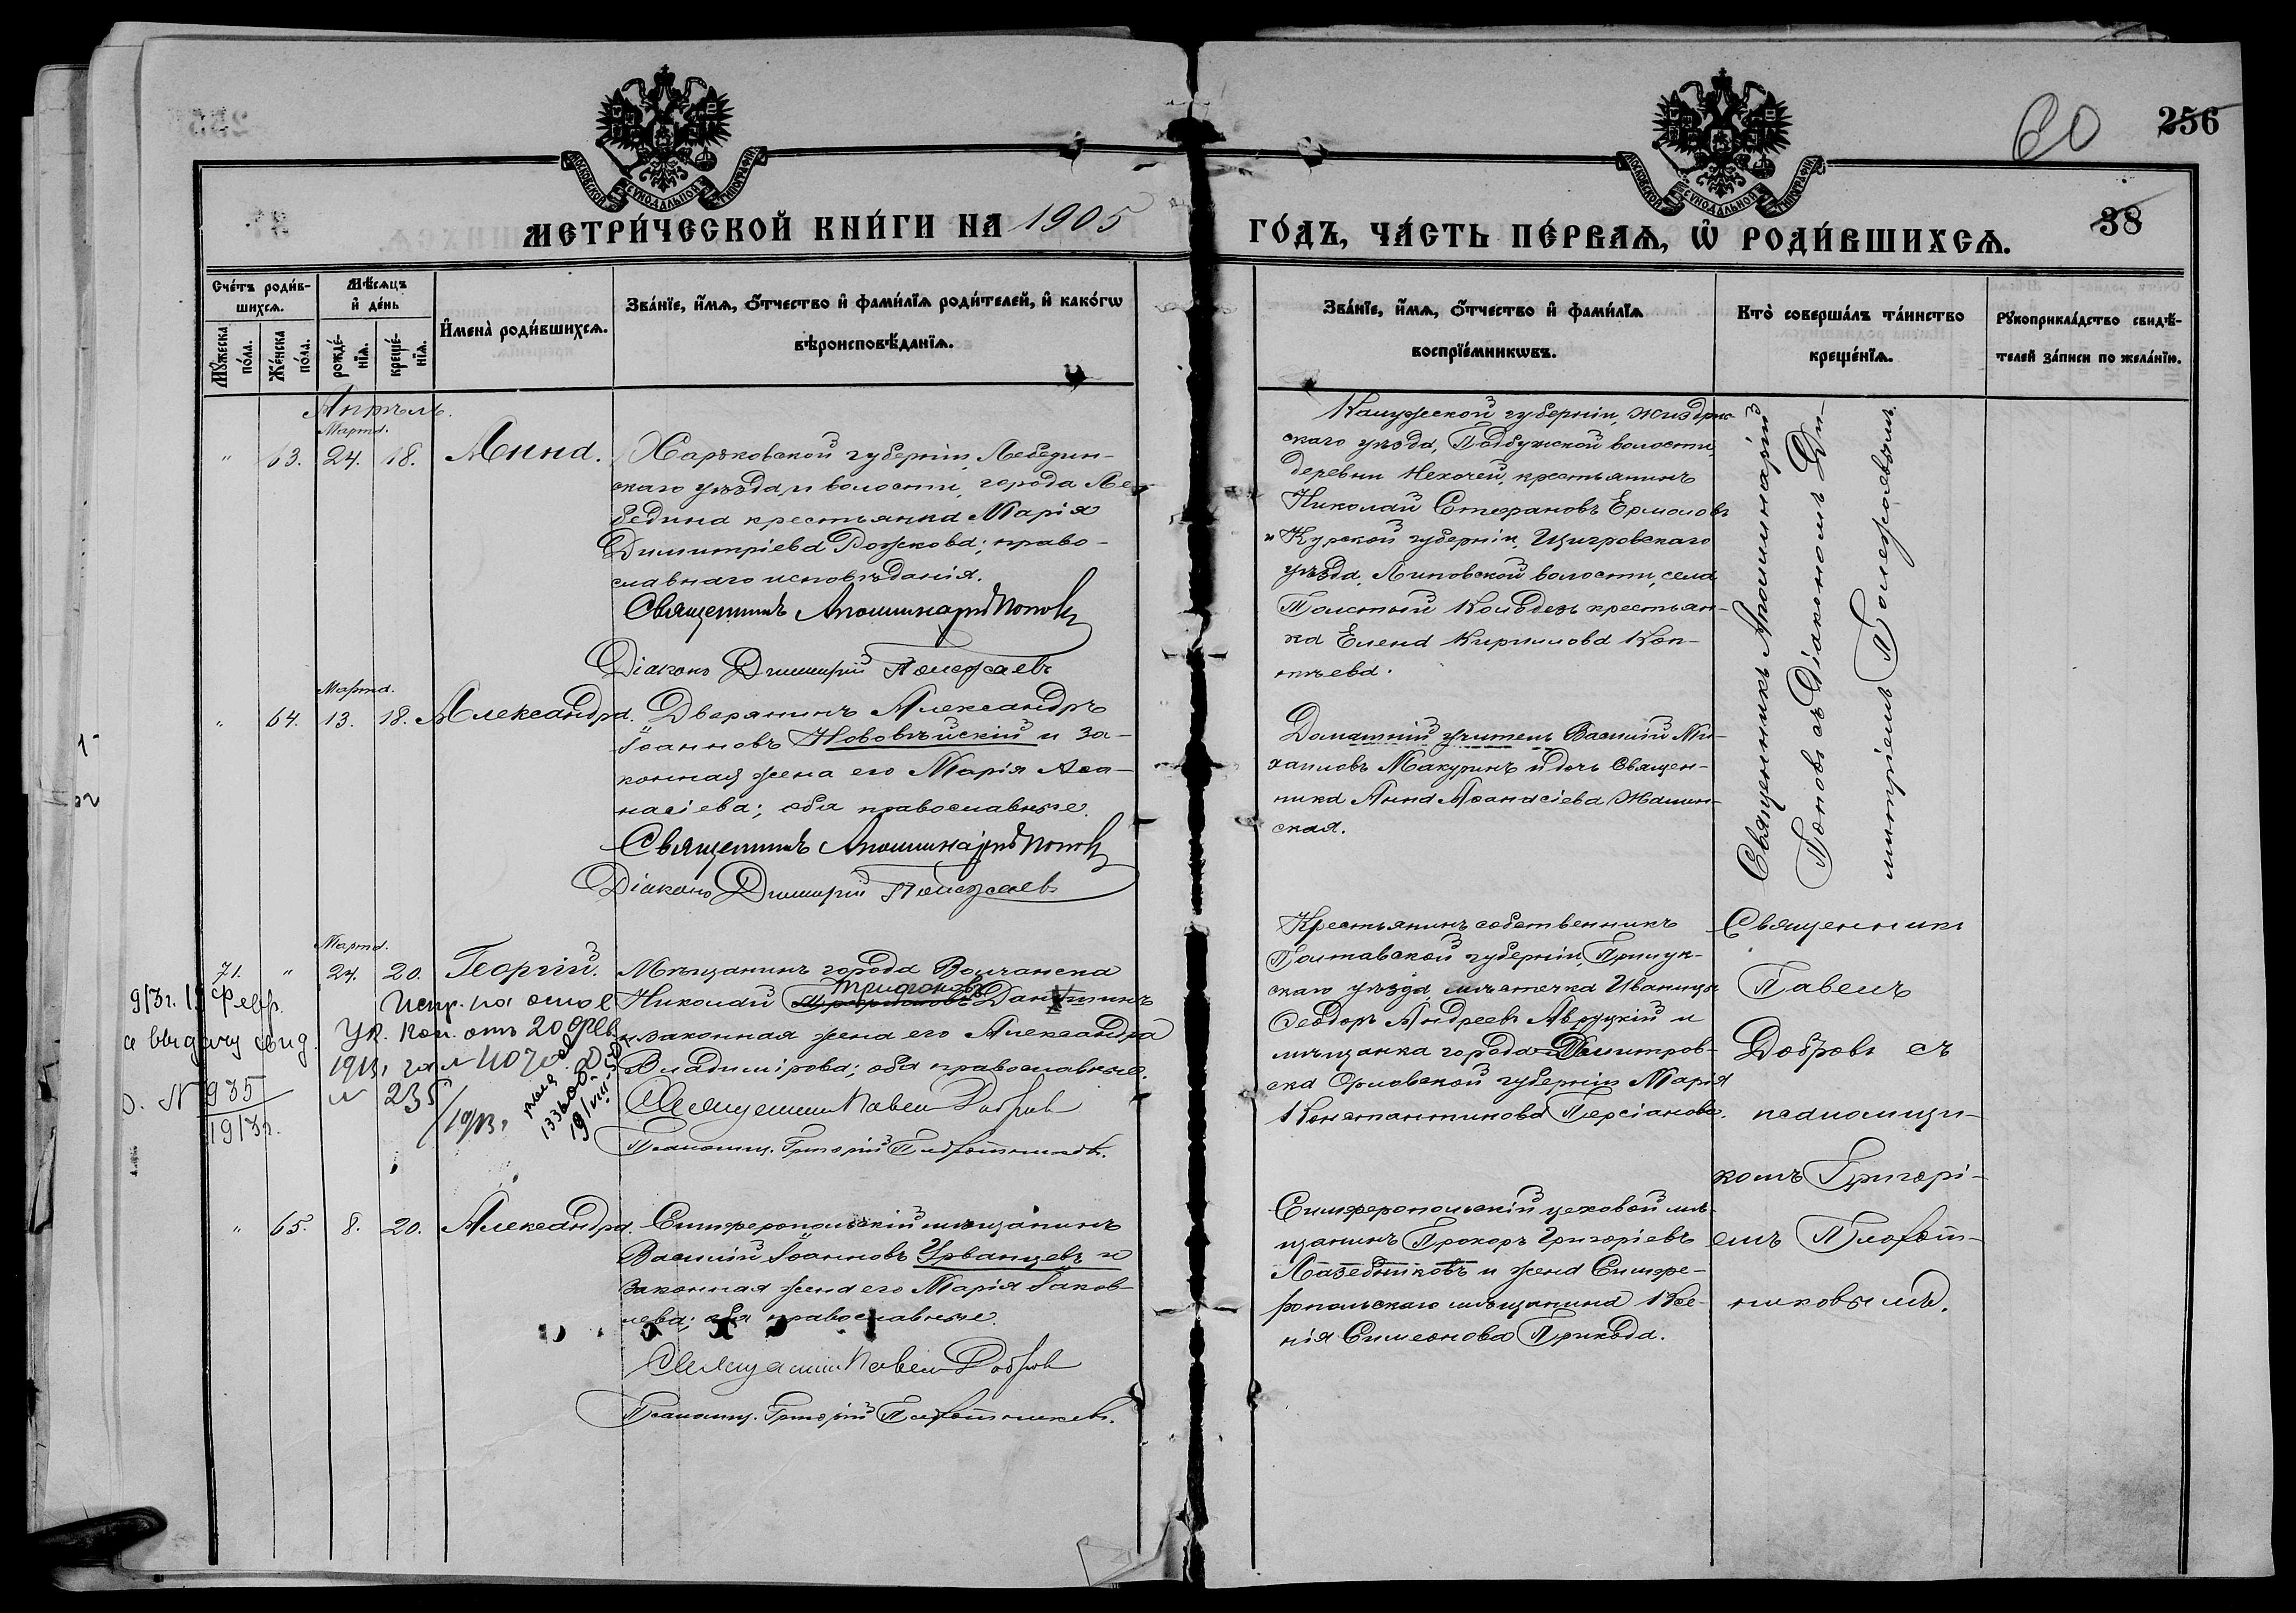 60
256
38
МОСКОВСКОЙ СѴНОДАЛЬНОЙ ТИПОГРАФІИ
МОСКОВСКОЙ СѴНОДАЛЬНОЙ ТИПОГРАФІИ
МЕТРИ́ЧЕСКОЙ КНИ́ГИ НА 1905
ГО́ДЪ, ЧА́СТЬ ПЕ́РВАѦ, Ѡ РОДИ́ВШИХСѦ.
Сче́тъ роди́в-
шихсѧ.
Мꙋ́жеска по́ла.
Же́нска по́ла.
Мѣ́сѧцъ
и҆ де́нь
рожде́-
нїѧ.
креще́-
нїѧ.
И҆мена̀ роди́вшихсѧ.
Зва́нїе, и҆́мѧ, ѻ҆́тчество и҆ фами́лїѧ роди́телей, и҆ како́гѡ
вѣроисповѣ́данїѧ.
Зва́нїе, и҆́мѧ, ѻ҆́тчество и҆ фами́лїѧ
воспрїе́мникѡвъ.
Кто̀ соверша́лъ та́инство
креще́нїѧ.
Рꙋкоприкла́дство свидѣ́-
телей за́писи по жела́нїю.
Апрѣль.
Марта.
" 63. 24. 18. Анна.
Харьковской губерніи, Лебедин-
скаго уѣзда и волости, города Ле-
бедина крестьянка Марія
Димитріева Рожкова; право-
славнаго исповѣданія.
Священникъ Аполлинарій Поповъ
Діаконъ Димитрій Полежаевъ
Калужской губерніи, Жиздрин-
скаго уѣзда, Подбужской волости,
деревни Нехочей, крестьянинъ
Николай Стефановъ Ермоловъ
и Курской губерніи, Щигровскаго
уѣзда, Липовской волости, села
Толстый Колодезь крестьян-
ка Елена Кириллова Коп-
тѣева.
Священникъ Аполлинарій
Поповъ съ Діакономъ Ди-
митріемъ Полежаевымъ
Марта.
" 64. 13. 18. Александра.
Дворянинъ Александръ
Іоанновъ Нововѣйскій и за-
конная жена его Марія Аѳа-
насіева; оба православные.
Священникъ Аполлинарій Поповъ
Діаконъ Димитрій Полежаевъ
Домашній учитель Василій Ми-
хаиловъ Макуринъ и дочь священ-
ника Анна Аѳанасіева Жалин-
ская.
Марта.
71. " 24. 20. Георгій.
Мѣщанинъ города Волчанска
Трифоновъ
Николай Данинъ
и законная жена его Александра
Владимірова; оба православные.
Священникъ Павелъ Добровъ
Псаломщ. Григорій Плотниковъ.
913 г. 19 Февр.
выдачу свид.
№ 935
1913 г.
Испр. на основ.
Ук. Кон. отъ 20 Февр.
1913 г за №
№ 235
1913 г
Крестьянинъ собственникъ
Полтавской губерніи, Прилук-
скаго уѣзда, мѣстечка Иваницы
Ѳеодоръ Андреевъ Авруцкій и
мѣщанка города Дмитров-
ска Орловской губерніи Марія
Константинова Персіанова.
Священникъ
Павелъ
Добровъ съ
псаломщи-
комъ Григорі-
емъ Плот-
никовымъ.
" 65. 8. 20. Александра.
Симферопольскій мѣщанинъ
Василій Іоанновъ Урванцевъ и
законная жена его Марія Іаков-
лева; оба православные.
Священникъ Павелъ Добровъ
Псаломщ. Григорій Плотниковъ.
Симферопольскій цеховой мѣ-
щанинъ Прохоръ Григоріевъ
Лазебниковъ и жена Симфе-
ропольскаго мѣщанина Ксе-
нія Симеонова Приходa.